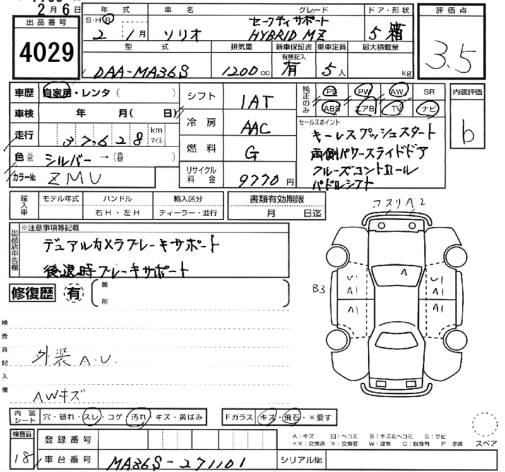 2月6日
出品番号
4029
年式 車名 グレード ドア・形状
S・H・R 2 1月 ソリオ セーフティサポート HYBRID MZ 5 箱
型式 排気量 新車保証書 乗車定員 最大積載量
有無記入
DAA-MA36S 1200cc 有 5人 kg
評価点
3.5
内装評価
b
車歴 自家用・レンタ( )
車検 年 月( 日)
走行 37,628 km マイル
色 シルバー →(色替)
カラーNo. ZMV
シフト 1AT
冷房 AAC
燃料 G
リサイクル料金 9770円
純正のみ PS PW AW SR
ABS エアB TV ナビ
セールスポイント
キーレスプッシュスタート
両側パワースライドドア
クルーズコントロール
パドルシフト
輸入車 モデル年式 ハンドル 輸入区分 書類有効期限
右H・左H ディーラー・並行 月 日迄
出品店申告欄
※注意事項等記載
デュアルカメラブレーキサポート
後退時ブレーキサポート
修復歴 有 箇所
検査員記入欄
外装A.U.
AWキズ
コスリA2
A
U1 U1
B3 A1 A1
内装シート 穴・破れ・スレ・コゲ・汚れ・キズ・黄ばみ
Fガラス キズ・飛石・×要す
A:キズ U:ヘコミ B:キズ&ヘコミ S:サビ
××:交換済 ×:交換要 W:波有 C:腐蝕有 P:塗装
スペア
検査員 18
登録番号
車台番号 MA36S-271101
シリアルNo.